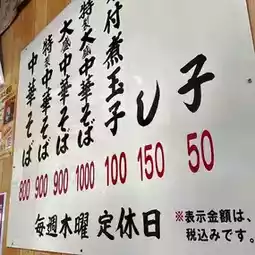 子 50
し 150
付煮玉子 100
特製大盛中華そば 1000
大盛中華そば 900
特製中華そば 900
中華そば 800
毎週木曜 定休日
※表示金額は、
税込みです。